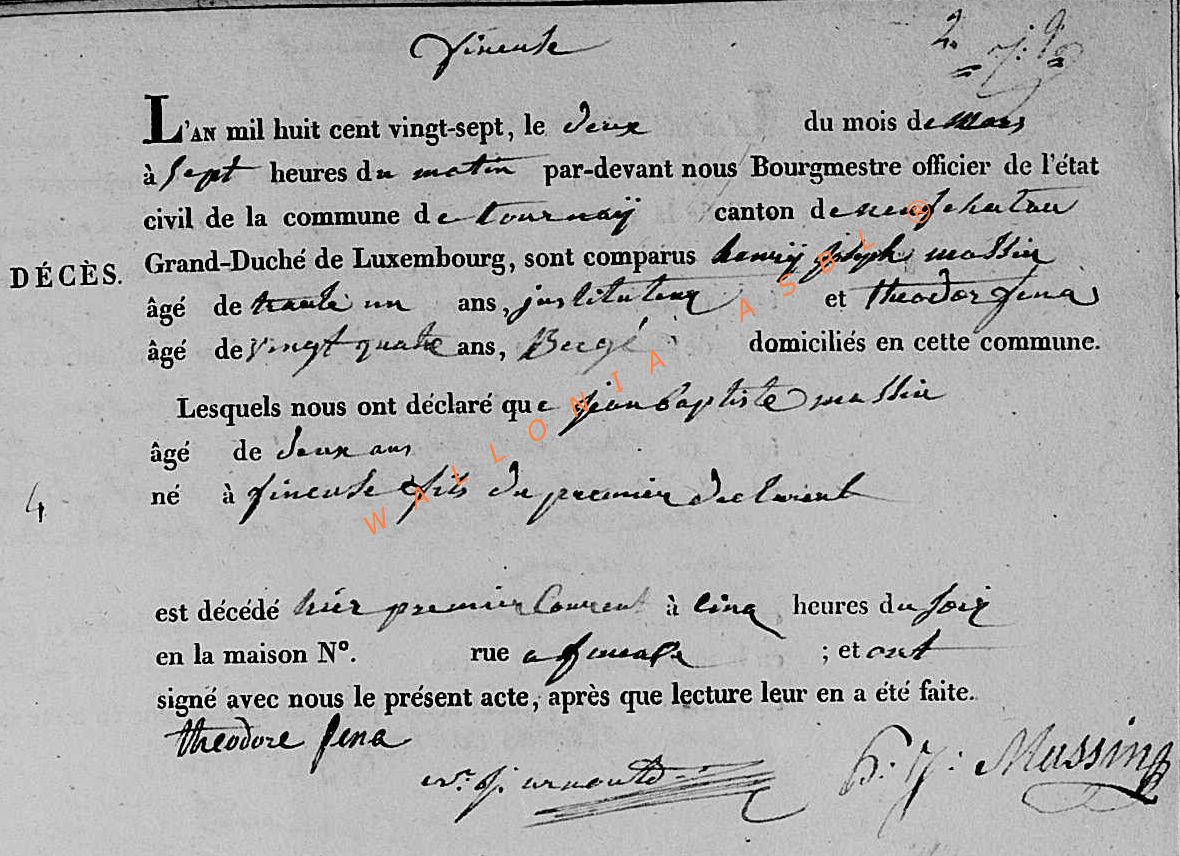 fineuse
L'AN mil huit cent vingt-sept, le deux du mois de mars
à sept heures du matin par-devant nous Bourgmestre officier de l'état
civil de la commune de tournaÿ canton de neufchatau
DÉCÈS.
Grand-Duché de Luxembourg, sont comparus henrÿ joseph massin
âgé de trante un ans, justituteur et theodor fena
âgé de vingt quatre ans, Bergé domiciliés en cette commune.
Lesquels nous ont déclaré que jean baptiste massin
âgé de deux ans
4
né à fineuse fils du premier declarent
est décédé hier premier Courent à cinq heures du soir
en la maison N°. rue a fineuse ; et ont
signé avec nous le présent acte, après que lecture leur en a été faite.
theodore fena
H. J. Massin
WALLONIA ASBL ©